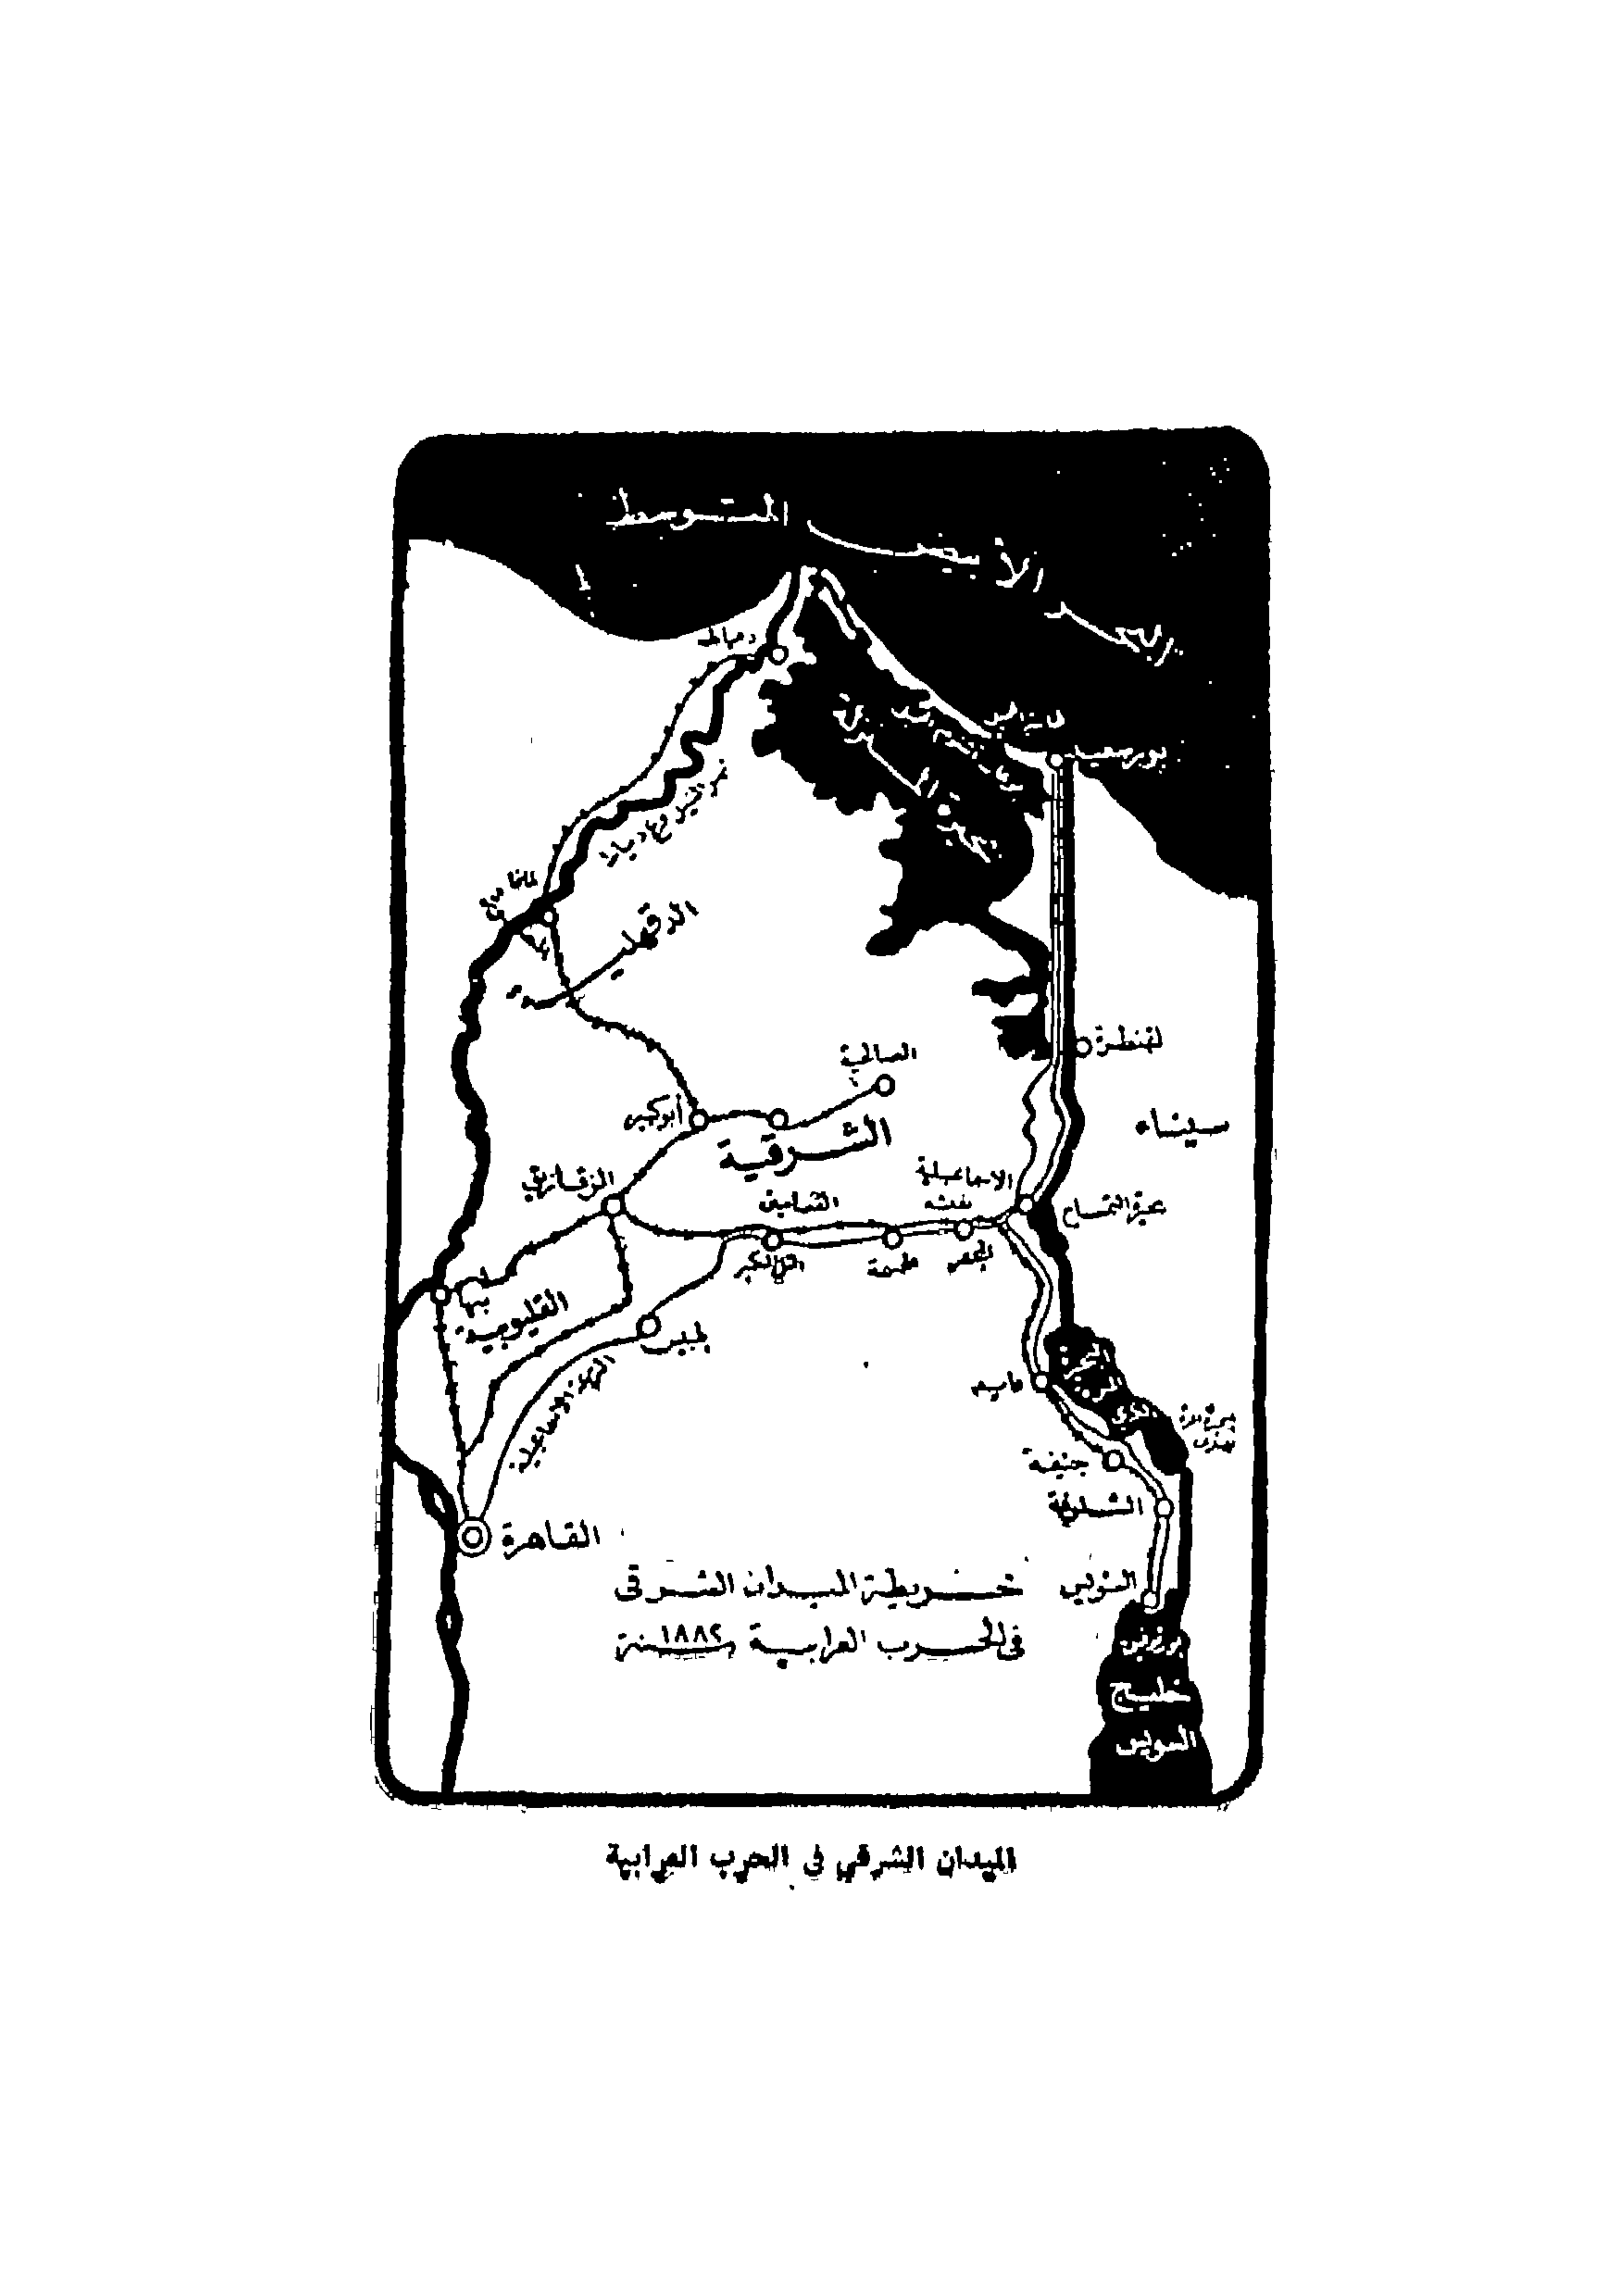 البحر الأبيض المتوسط
دمياط
بورسعيد
الدقهلية
القنطرة
الصالحية
سيناء
أبوكبير
الشرقية
الزقازيق
الاسماعيلية
نفيشه
القصاصين
بحيرة التمساح
التل الكبير
المحسمة
بنها
القليوبية
بلبيس
فايد
جنيفة
الشلوفة
القاهرة
السويس
خريطة الميدان الشرقى
فى الحرب العرابية سنة ١٨٨٢
خليج
السويس
الميدان الشرقي في الحرب العرابية